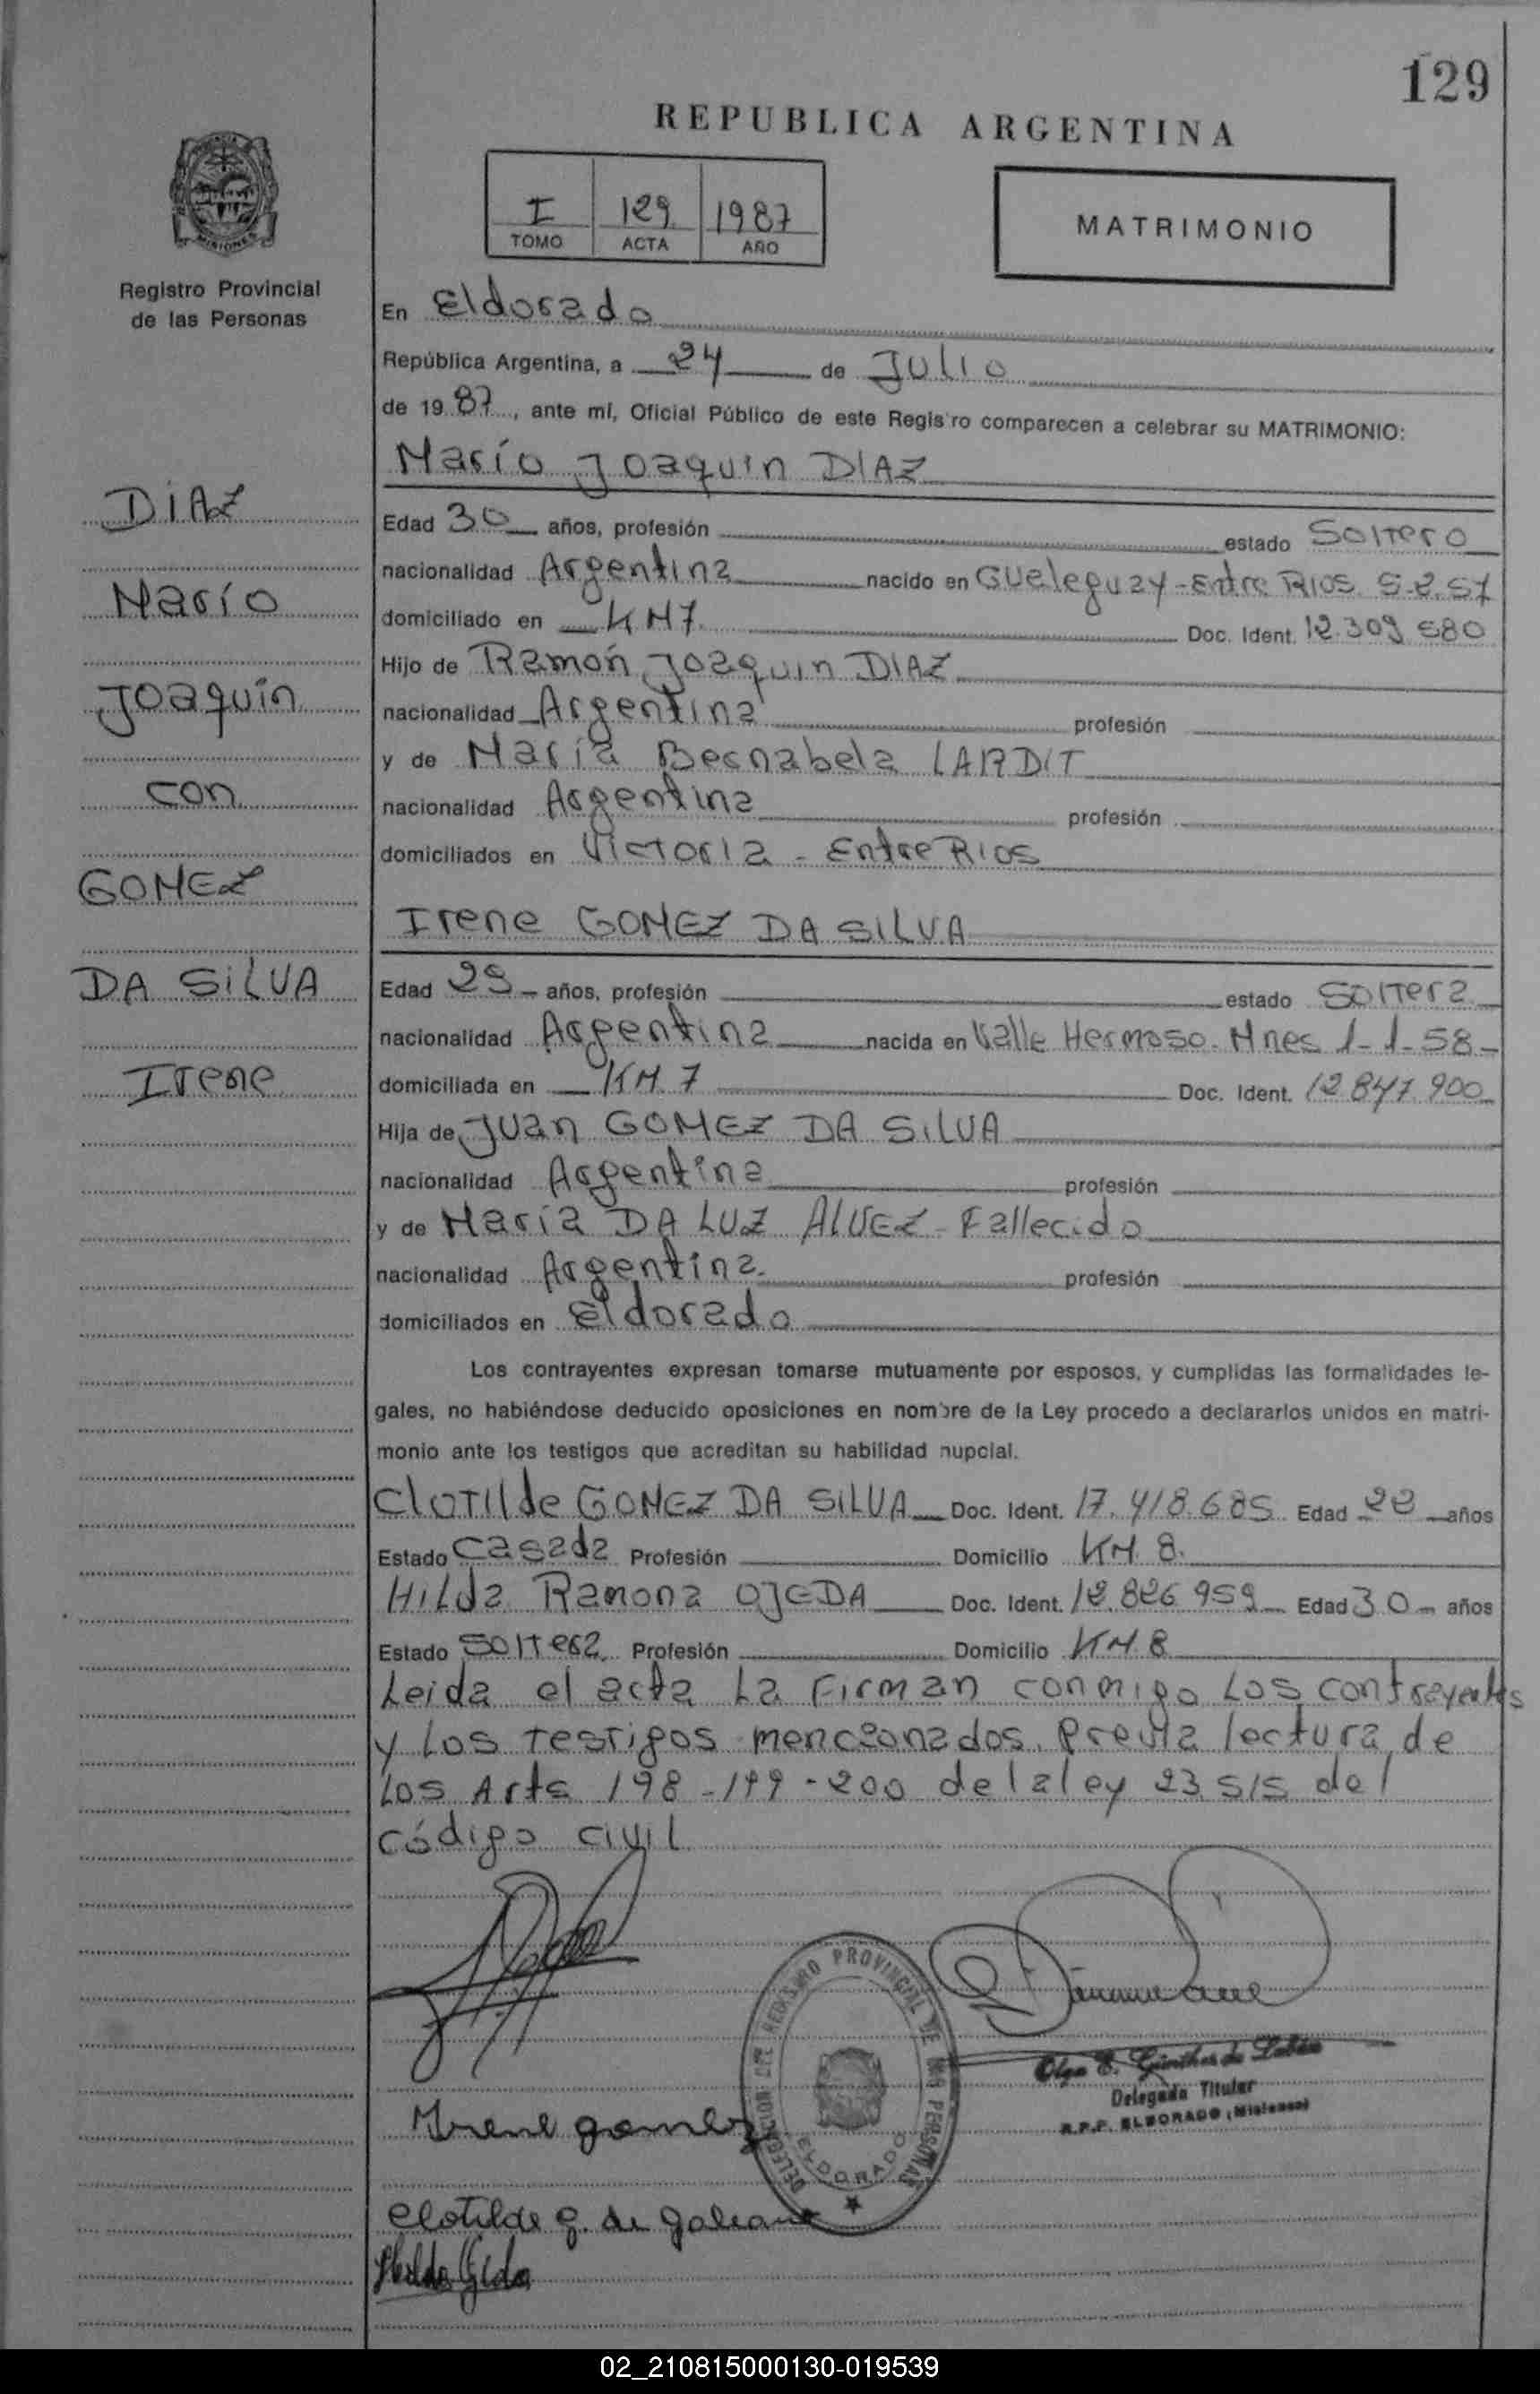 129
REPUBLICA ARGENTINA
I 129 1987
TOMO ACTA AÑO
MATRIMONIO
MISIONES
Registro Provincial
de las Personas
En Eldorado
República Argentina, a 24 de Julio
de 1987, ante mí, Oficial Público de este Registro comparecen a celebrar su MATRIMONIO:
Mario Joaquin DIAZ
DIAZ
Mario
Joaquin
con
GOMEZ
DA SILVA
Irene
Edad 30 años, profesión estado Soltero
nacionalidad Argentina nacido en Gueleguay - Entre Rios 5-2-57
domiciliado en KM7 Doc. Ident. 12.309.580
Hijo de Ramón Joaquin DIAZ
nacionalidad Argentina profesión
y de María Bernabela LARDIT
nacionalidad Argentina profesión
domiciliados en Victoria - Entre Rios
Irene GOMEZ DA SILVA
Edad 29 años, profesión estado Soltera
nacionalidad Argentina nacida en Valle Hermoso. Mnes 1-1-58
domiciliada en KM 7 Doc. Ident. 12 847.900
Hija de Juan GOMEZ DA SILVA
nacionalidad Argentina profesión
y de María DA LUZ ALVEZ - Fallecido
nacionalidad Argentina profesión
domiciliados en Eldorado
Los contrayentes expresan tomarse mutuamente por esposos, y cumplidas las formalidades le-
gales, no habiéndose deducido oposiciones en nombre de la Ley procedo a declararlos unidos en matri-
monio ante los testigos que acreditan su habilidad nupcial.
Clotilde GOMEZ DA SILVA Doc. Ident. 17.418.685 Edad 22 años
Estado Casada Profesión Domicilio KM 8.
Hilda Ramona OJEDA Doc. Ident. 12.826.959 Edad 30 años
Estado Soltera Profesión Domicilio KM 8
Leida el acta La Firman conmigo Los contrayentes
y Los testigos mencionados. Previa lectura de
Los Arts 198-199-200 de la ley 23 515 del
código civil
DELEGACION DEL REGISTRO PROVINCIAL DE LAS PERSONAS
ELDORADO
Olga E. Günther de
Delegada Titular
R.P.P. ELDORADO (Misiones)
Irene gomez
Clotilde g. de galeano
Hilda Ojeda
02_210815000130-019539